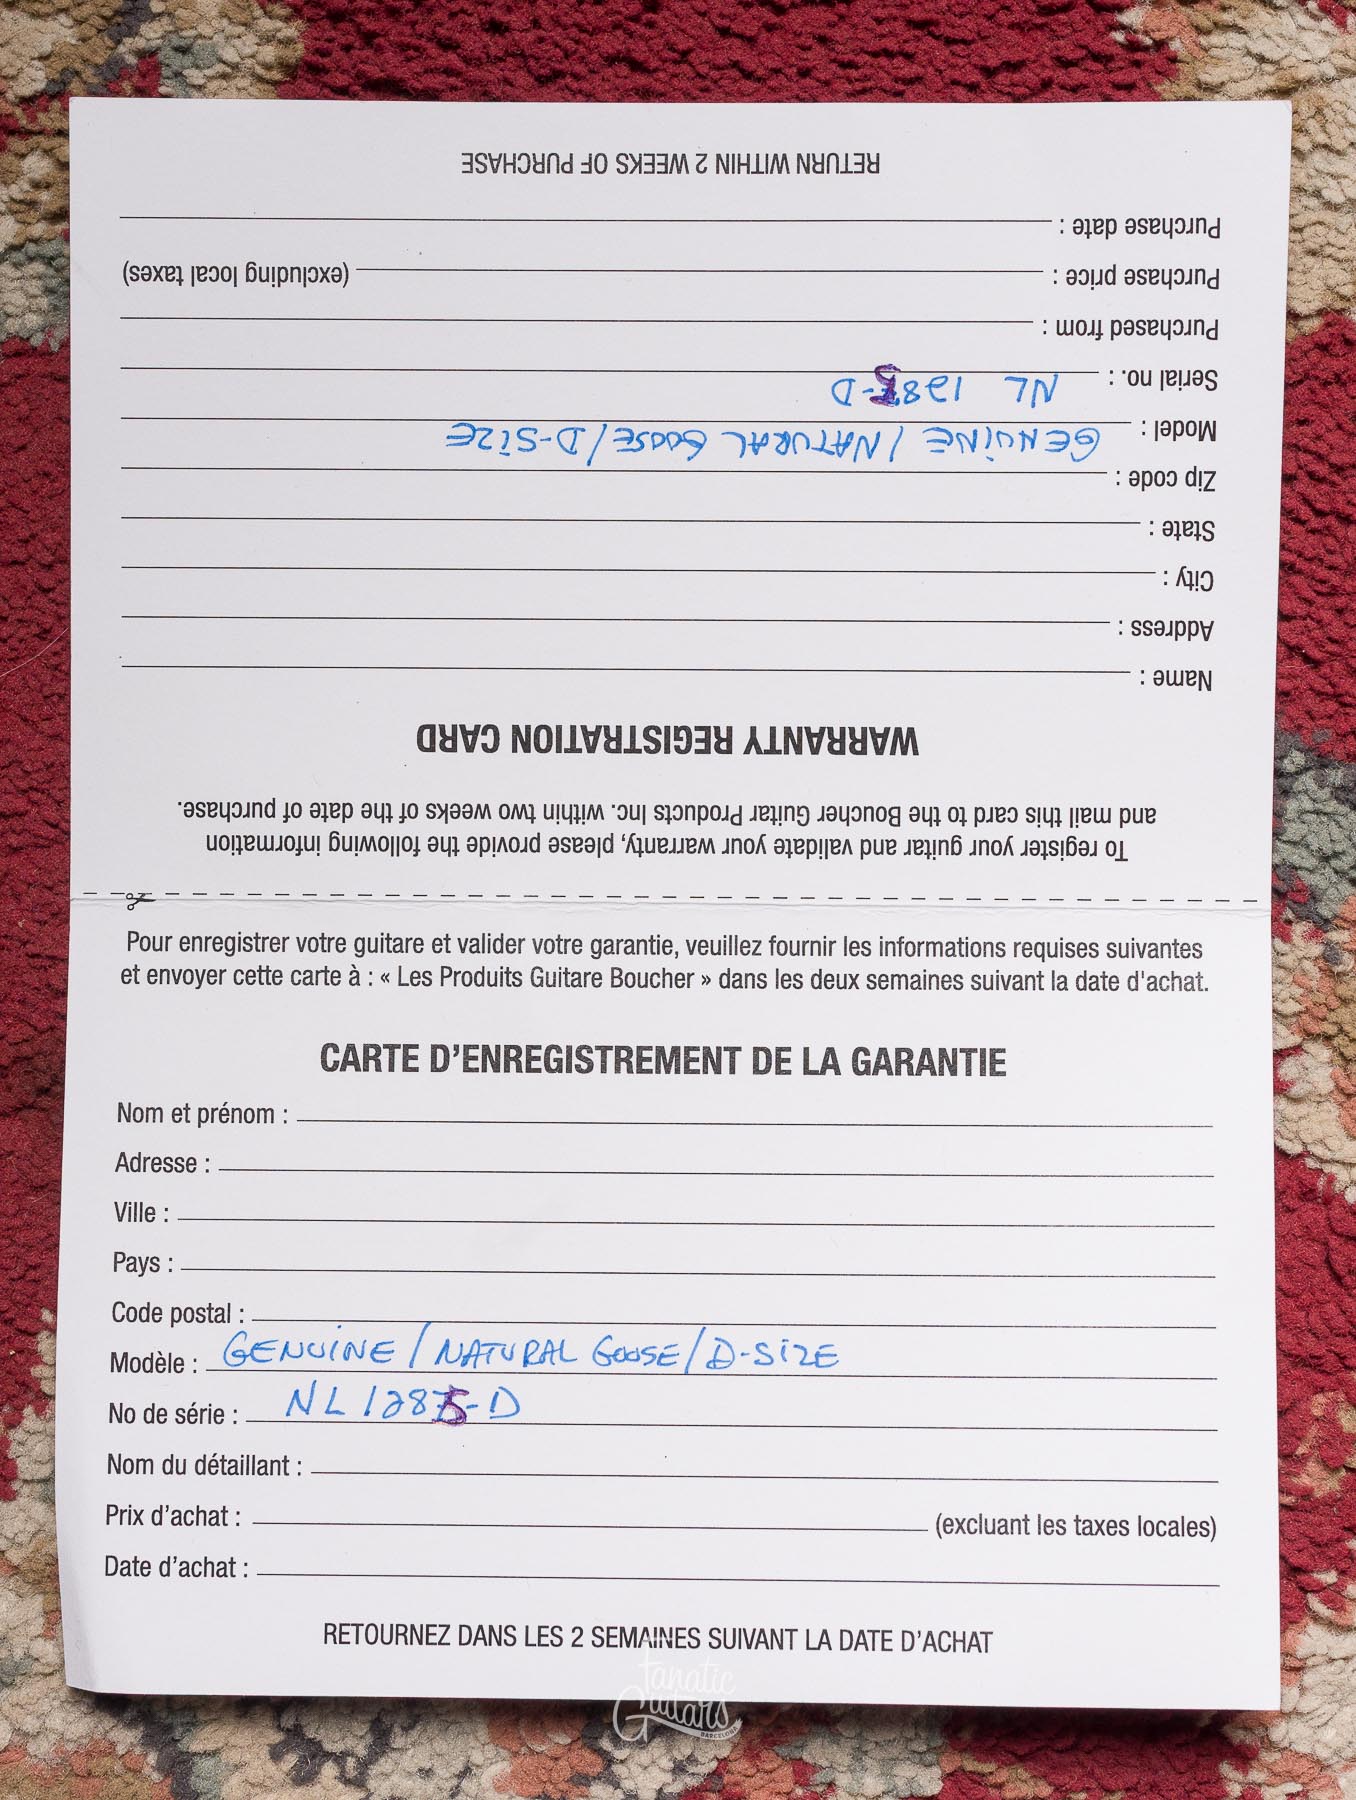 RETURN WITHIN 2 WEEKS OF PURCHASE
Purchase date :
Purchase price : (excluding local taxes)
Purchased from :
Serial no. : NL 1285-D
Model : GENUINE / NATURAL GOOSE / D-SIZE
Zip code :
State :
City :
Address :
Name :
WARRANTY REGISTRATION CARD
and mail this card to the Boucher Guitar Products Inc. within two weeks of the date of purchase.
To register your guitar and validate your warranty, please provide the following information
Pour enregistrer votre guitare et valider votre garantie, veuillez fournir les informations requises suivantes
et envoyer cette carte à : « Les Produits Guitare Boucher » dans les deux semaines suivant la date d'achat.
CARTE D'ENREGISTREMENT DE LA GARANTIE
Nom et prénom :
Adresse :
Ville :
Pays :
Code postal :
Modèle : GENUINE / NATURAL GOOSE / D-SIZE
No de série : NL 1285-D
Nom du détaillant :
Prix d'achat : (excluant les taxes locales)
Date d'achat :
RETOURNEZ DANS LES 2 SEMAINES SUIVANT LA DATE D'ACHAT
Fanatic
Guitars
BARCELONA